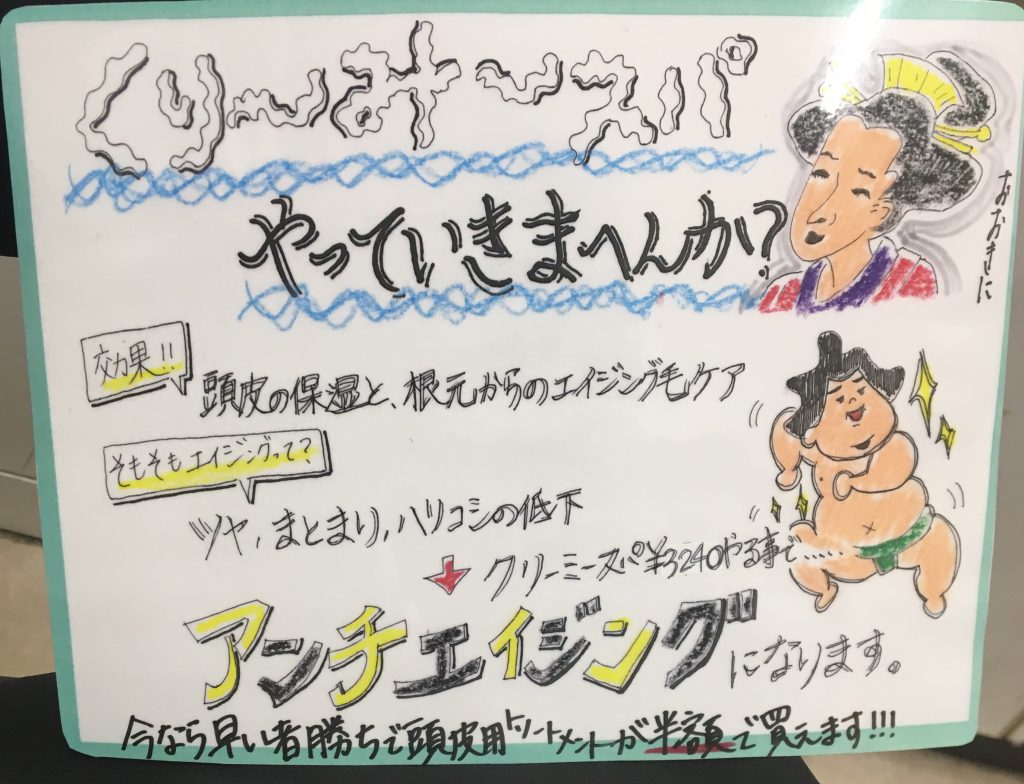 くり～み～スパ
やっていきまへんか?
おおきに
効果!!
頭皮の保湿と、根元からのエイジング毛ケア
そもそもエイジングって?
ツヤ,まとまり,ハリコシの低下
クリーミースパ¥3240やる事で……
アンチエイジングになります。
今なら早い者勝ちで頭皮用トリートメントが半額で買えます!!!